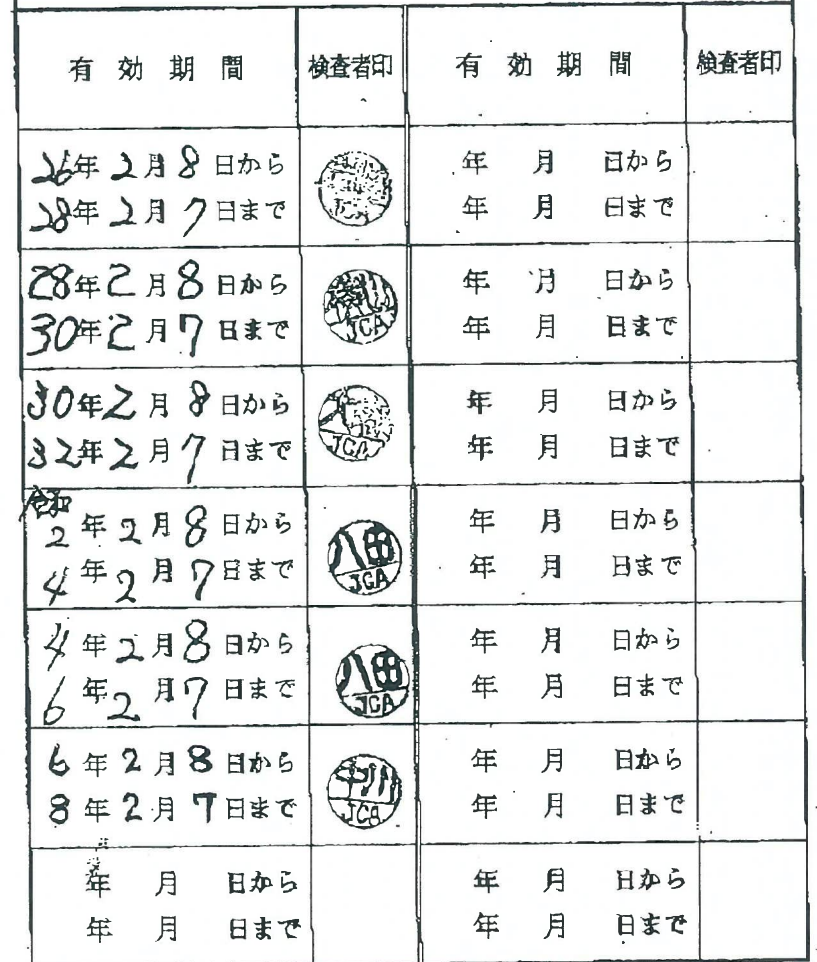 有効期間 検査者印 有効期間 検査者印
26年2月8日から
28年2月7日まで
JCA
年 月 日から
年 月 日まで
28年2月8日から
30年2月7日まで
JCA
年 月 日から
年 月 日まで
30年2月8日から
32年2月7日まで
JCA
年 月 日から
年 月 日まで
令和
2年2月8日から
4年2月7日まで
八田
JCA
年 月 日から
年 月 日まで
4年2月8日から
6年2月7日まで
八田
JCA
年 月 日から
年 月 日まで
6年2月8日から
8年2月7日まで
中川
JCA
年 月 日から
年 月 日まで
年 月 日から
年 月 日まで
年 月 日から
年 月 日まで